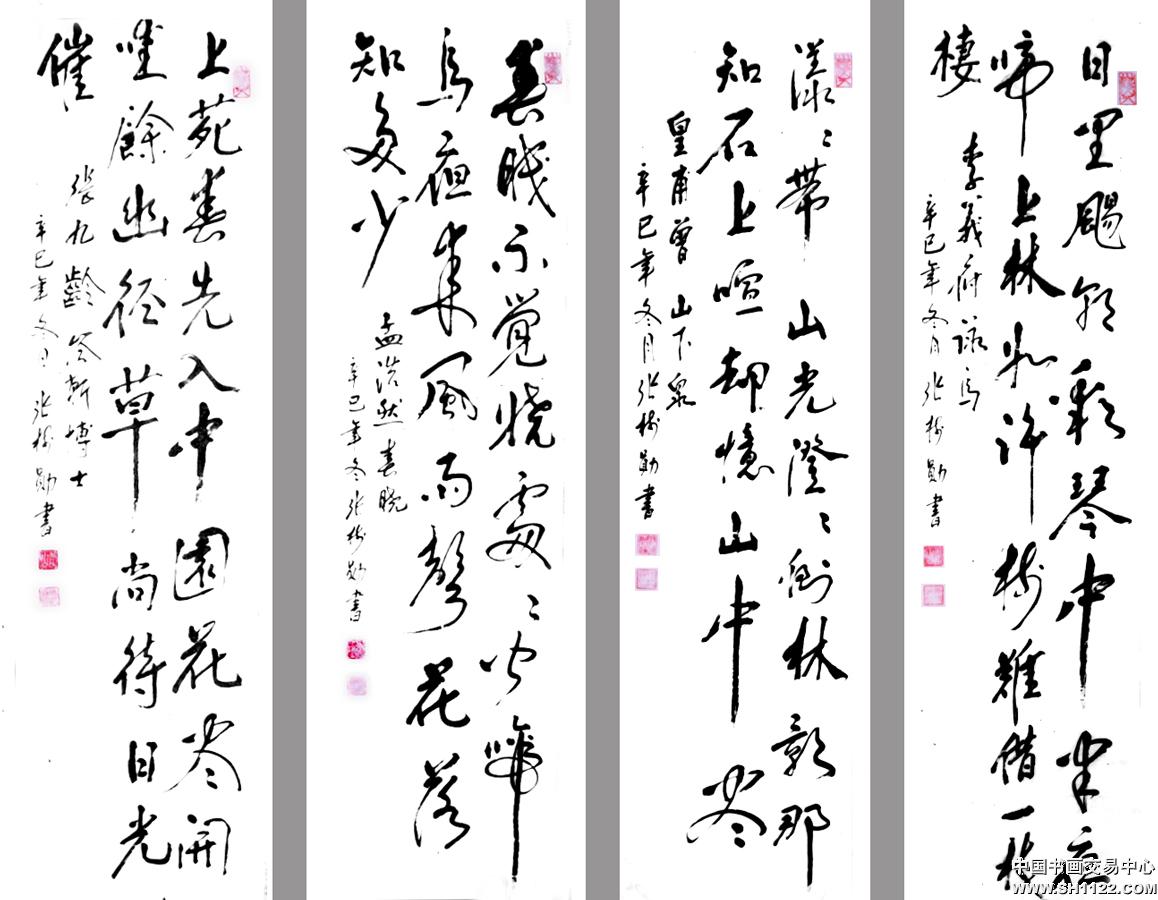 日里颺朝彩琴中半夜
啼上林如許樹難借一枝
棲
李義府詠烏
辛巳年冬月張樹勛書
漾〻帶山光澄〻倒林影那
知石上喧却憶山中尽
皇甫曾山下泉
辛巳年冬月張樹勛書
春眠不覺曉處〻聞啼
鳥夜來風雨聲花落
知多少
孟浩然春曉
辛巳年冬張樹勛書
上苑春先入中園花尽開
唯餘幽徑草尚待日光
催
張九齡答靳博士
辛巳年冬月張樹勛書
中国书画交易中心
WWW.SH1122.COM